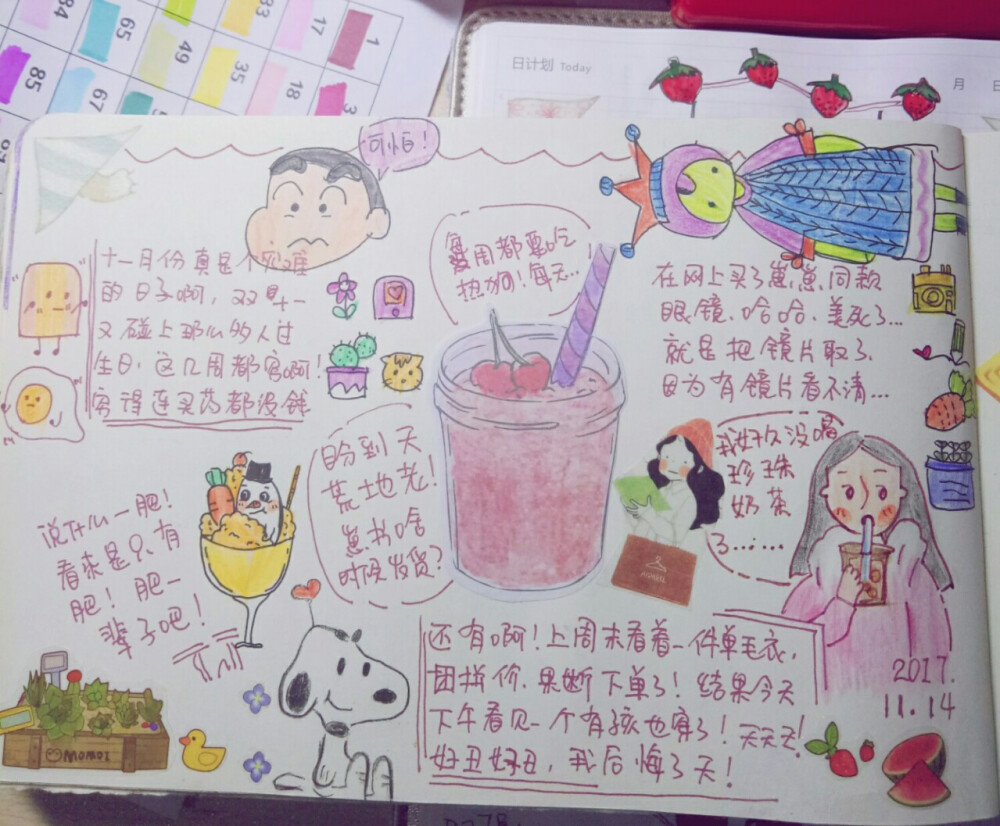 1
17
33
65
84
3
18
35
49
67
85
日计划 Today
月
日
可怕！
十一月份真是个灾难
的日子啊，双11
又碰上那么多人过
生日，这几周都穷啊！
穷得连买药都没钱
每周都要吃
热狗！每天...
在网上买了崽崽同款
眼镜、哈哈、美死了...
就是把镜片取了
因为有镜片看不清...
盼到天
荒地老！
崽书啥
时候发货？
我好久没喝
珍珠
奶茶
了......
说什么一肥！
看来是只有
肥！肥一
辈子吧！
还有啊！上周末看着一件单毛衣，
团拼价，果断下单了！结果今天
下午看见一个有孩也穿了！天天天！
好丑好丑，我后悔了天！
2017.
11.14
MOMOI